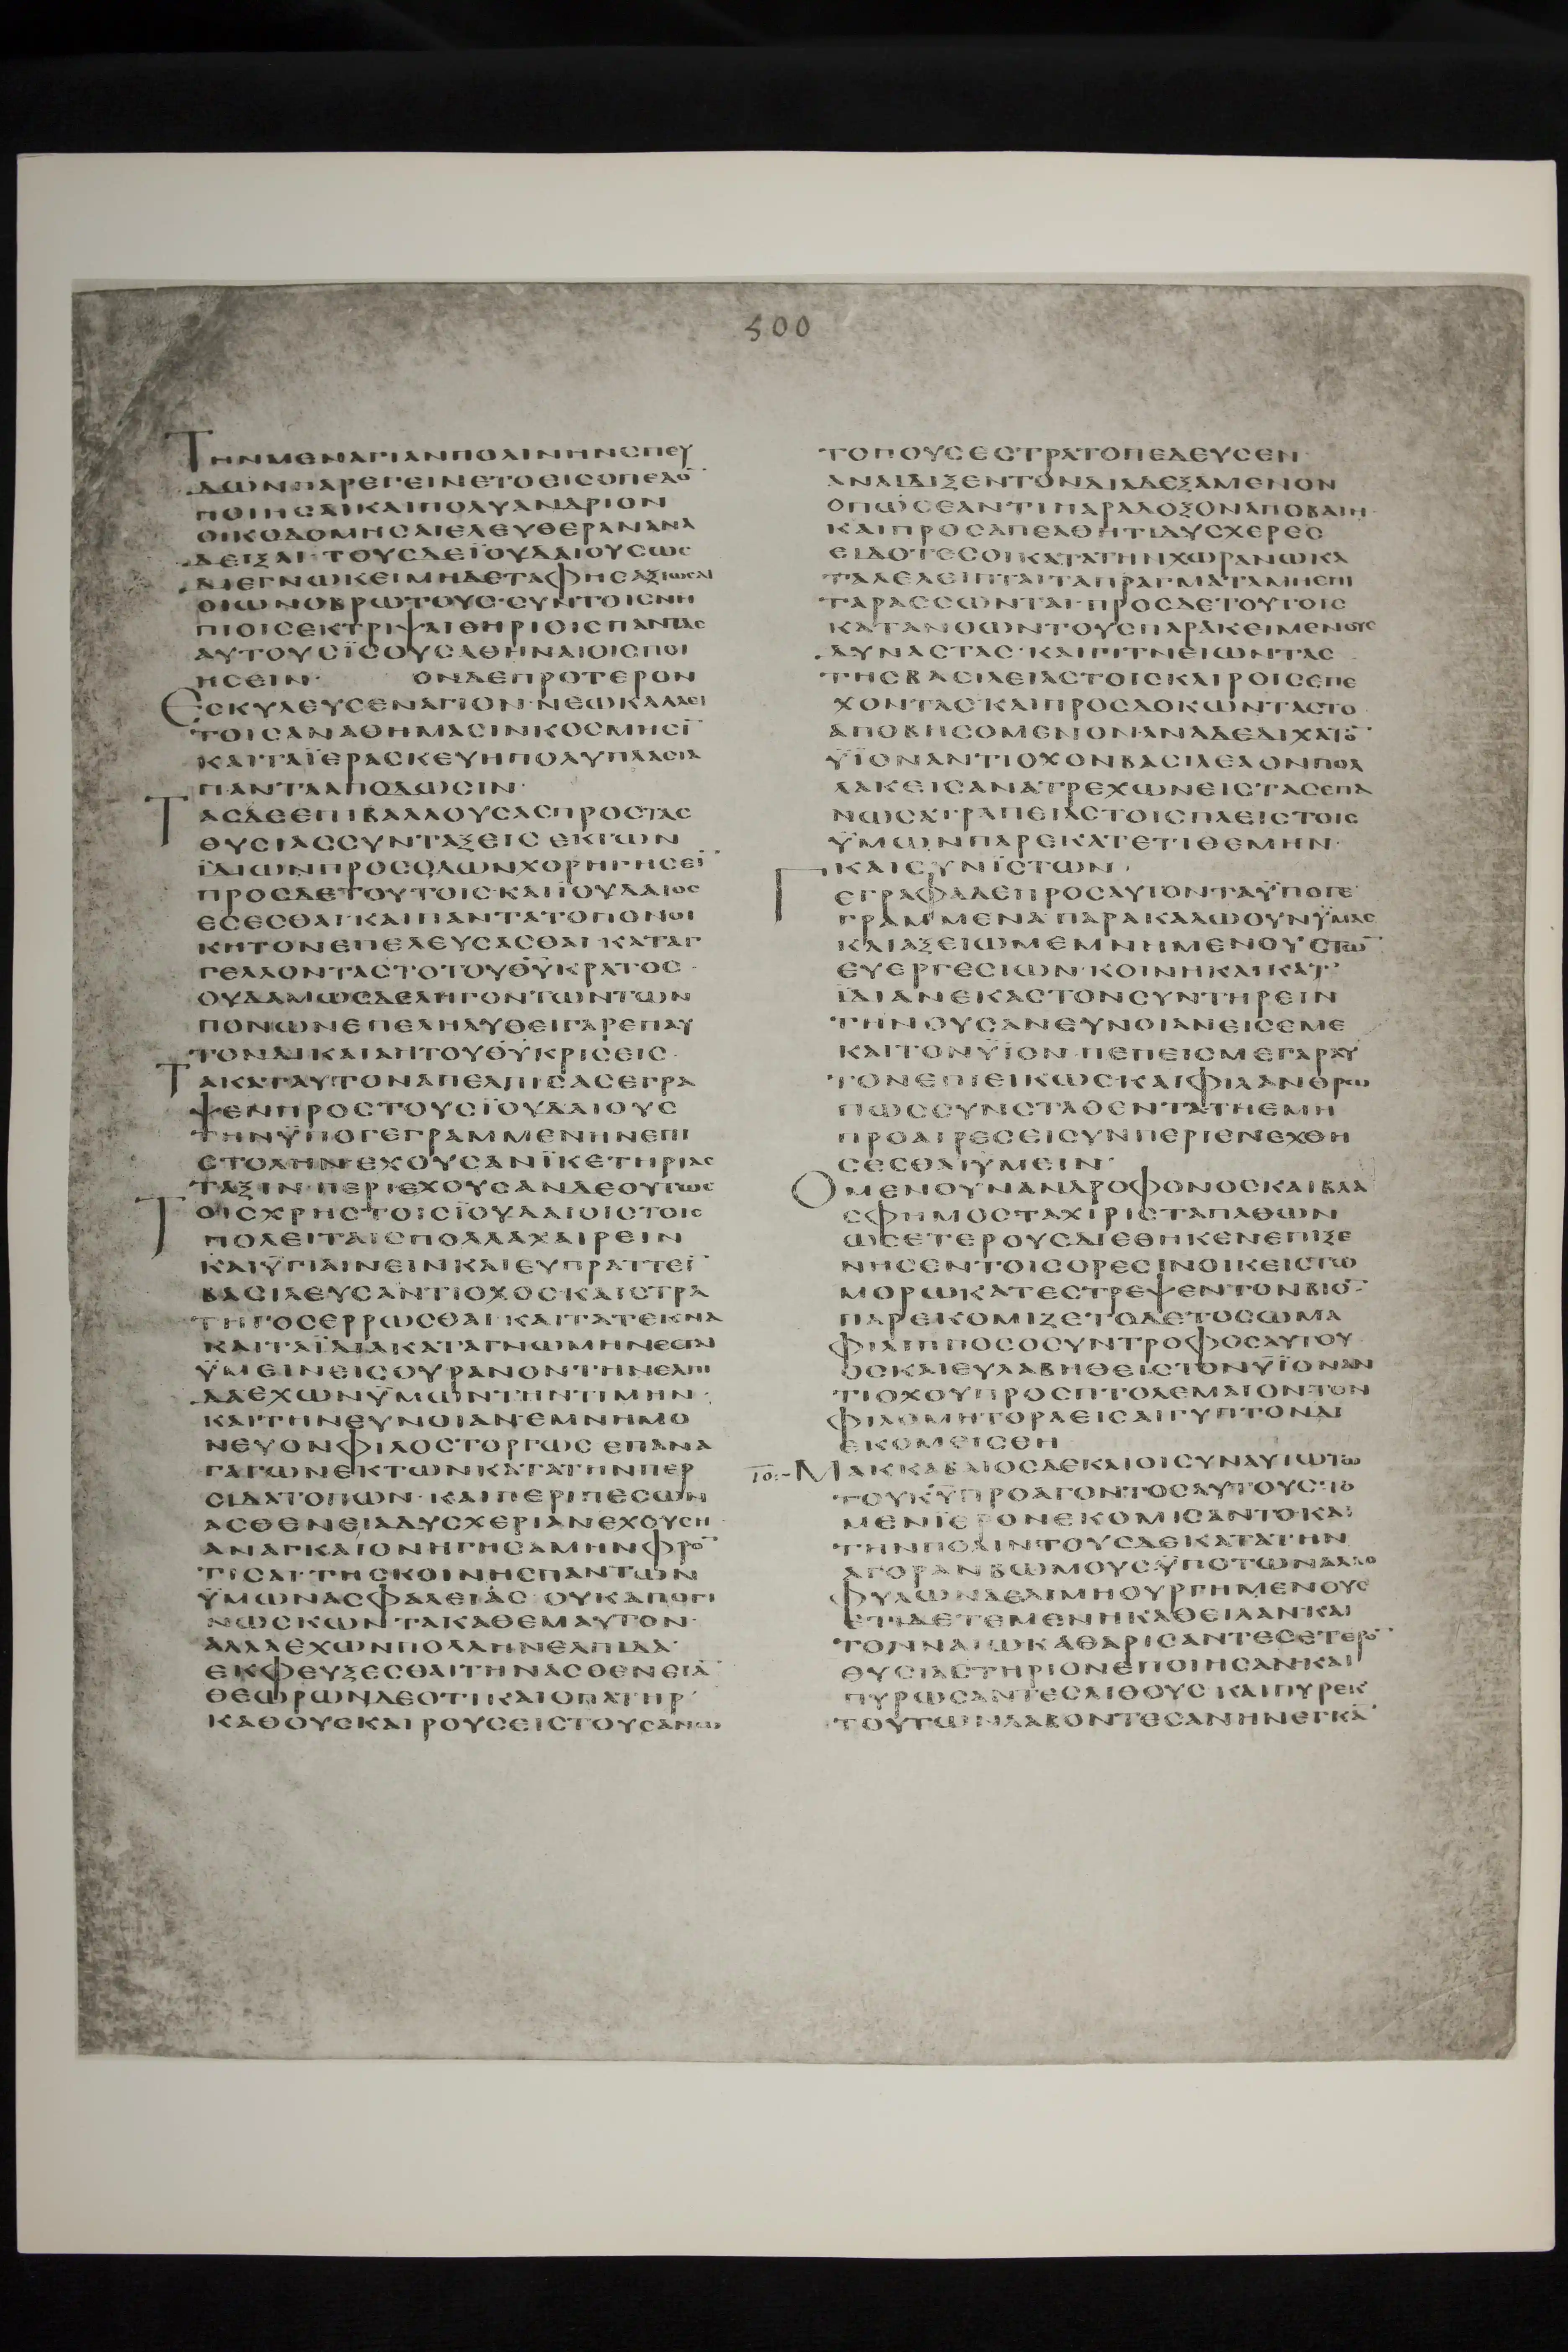 500
ΤΗΝΜΕΝΑΓΙΑΝΠΟΛΙΝΗΝΣΠΕΥ
ΔΩΝΠΑΡΕΓΕΙΝΕΤΟΕΙΣΟΠΕΔΟ¯
ΠΟΙΗΣΑΙΚΑΙΠΟΛΥΑΝΔΡΙΟΝ
ΟΙΚΟΔΟΜΗΣΑΙΕΛΕΥΘΕΡΑΝΑΝΑ
ΔΕΙΞΑΙ·ΤΟΥΣΔΕΪΟΥΔΑΙΟΥΣΩΣ
ΔΙΕΓΝΩΚΕΙΜΗΔΕΤΑΦΗΣΑΞΙΩΣΑΙ
ΟΙΩΝΟΒΡΩΤΟΥΣ·ΣΥΝΤΟΙΣΝΗ
ΠΙΟΙΣΕΚΤΡΙΨΑΙΘΗΡΙΟΙΣΠΑΝΤΑΣ
ΑΥΤΟΥΣΪΣΟΥΣΑΘΗΝΑΙΟΙΣΠΟΙ
ΗΣΕΙΝ· ΟΝΔΕΠΡΟΤΕΡΟΝ
ΕΣΚΥΛΕΥΣΕΝΑΓΙΟΝ·ΝΕΩΚΑΛΛΕΙ
ΤΟΙΣΑΝΑΘΗΜΑΣΙΝΚΟΣΜΗΣΙ¯
ΚΑΙΤΑΪΕΡΑΣΚΕΥΗΠΟΛΥΠΛΑΣΙΑ
ΠΑΝΤΑΑΠΟΔΩΣΙΝ·
ΤΑΣΔΕΕΠΙΒΑΛΛΟΥΣΑΣΠΡΟΣΤΑΣ
ΘΥΣΙΑΣΣΥΝΤΑΞΕΙΣ ΕΚΤΩΝ
ΪΔΙΩΝΠΡΟΣΟΔΩΝΧΟΡΗΓΗΣΕΙ¯
ΠΡΟΣΔΕΤΟΥΤΟΙΣ·ΚΑΙΪΟΥΔΑΙΟΣ
ΕΣΕΣΘΑΙ·ΚΑΙΠΑΝΤΑΤΟΠΟΝΟΙ
ΚΗΤΟΝΕΠΕΛΕΥΣΑΣΘΑΙ·ΚΑΤΑΓ
ΓΕΛΛΟΝΤΑΣΤΟΤΟΥΘ̅Υ̅ΚΡΑΤΟΣ·
ΟΥΔΑΜΩΣΔΕΛΗΓΟΝΤΩΝΤΩΝ
ΠΟΝΩΝΕΠΕΛΗΛΥΘΕΙΓΑΡΕΠΑΥ
ΤΟΝΔΙΚΑΙΑΗΤΟΥΘ̅Υ̅ΚΡΙΣΕΙΣ·
ΤΑΚΑΤΑΥΤΟΝΑΠΕΛΠΙΣΑΣΕΓΡΑ
ΨΕΝΠΡΟΣΤΟΥΣΪΟΥΔΑΙΟΥΣ
ΤΗΝΫΠΟΓΕΓΡΑΜΜΕΝΗΝΕΠΙ
ΣΤΟΛΗΝ·ΕΧΟΥΣΑΝΪΚΕΤΗΡΙΑΣ
ΤΑΞΙΝ·ΠΕΡΙΕΧΟΥΣΑΝΔΕΟΥΤΩΣ
ΤΟΙΣΧΡΗΣΤΟΙΣΪΟΥΔΑΙΟΙΣΤΟΙΣ
ΠΟΛΕΙΤΑΙΣΠΟΛΛΑΧΑΙΡΕΙΝ
ΚΑΙΫΓΙΑΙΝΕΙΝΚΑΙΕΥΠΡΑΤΤΕΙ¯
ΒΑΣΙΛΕΥΣΑΝΤΙΟΧΟΣ·ΚΑΙΣΤΡΑ
ΤΗΓΟΣΕΡΡΩΣΘΑΙ·ΚΑΙΤΑΤΕΚΝΑ
ΚΑΙΤΑΪΔΙΑΚΑΤΑΓΝΩΜΗΝΕΣΤΑΙ
ΫΜΕΙΝΕΙΣΟΥΡΑΝΟΝΤΗΝΕΛΠΙ
ΔΑΕΧΩΝΫΜΩΝΤΗΝΤΙΜΗΝ·
ΚΑΙΤΗΝΕΥΝΟΙΑΝ·ΕΜΝΗΜΟ
ΝΕΥΟΝΦΙΛΟΣΤΟΡΓΩΣ ΕΠΑΝΑ
ΓΑΓΩΝΕΚΤΩΝΚΑΤΑΤΗΝΠΕΡ
ΣΙΔΑΤΟΠΩΝ·ΚΑΙΠΕΡΙΠΕΣΩΝ
ΑΣΘΕΝΕΙΑΔΥΣΧΕΡΙΑΝΕΧΟΥΣΗ·
ΑΝΑΓΚΑΙΟΝΗΓΗΣΑΜΗΝΦΡΟ¯
ΤΙΣΑΙ·ΤΗΣΚΟΙΝΗΣΠΑΝΤΩΝ
ΫΜΩΝΑΣΦΑΛΕΙΑΣ·ΟΥΚΑΠΟΓΙ
ΝΩΣΚΩΝ ΤΑΚΑΘΕΜΑΥΤΟΝ·
ΑΛΛΑΕΧΩΝΠΟΛΛΗΝΕΛΠΙΔΑ·
ΕΚΦΕΥΞΕΣΘΑΙΤΗΝΑΣΘΕΝΕΙΑ¯
ΘΕΩΡΩΝΔΕΟΤΙΚΑΙΟΠΑΤΗΡ·
ΚΑΘΟΥΣΚΑΙΡΟΥΣΕΙΣΤΟΥΣΑΝΩ
ΤΟΠΟΥΣΕΣΤΡΑΤΟΠΕΔΕΥΣΕΝ·
ΑΝΑΙΔΙΞΕΝΤΟΝΔΙΑΔΕΞΑΜΕΝΟΝ
ΟΠΩΣΕΑΝΤΙΠΑΡΑΔΟΞΟΝΑΠΟΒΑΙΗ·
ΚΑΙΠΡΟΣΑΠΕΛΘΗΤΙΔΥΣΧΕΡΕΣ
ΕΙΔΟΤΕΣΟΙΚΑΤΑΤΗΝΧΩΡΑΝΩΚΑ
ΤΑΛΕΛΕΙΠΤΑΙΤΑΠΡΑΓΜΑΤΑΜΗΕΠΙ
ΤΑΡΑΣΣΩΝΤΑΙ·ΠΡΟΣΔΕΤΟΥΤΟΙΣ
ΚΑΤΑΝΟΩΝΤΟΥΣΠΑΡΑΚΕΙΜΕΝΟΥΣ
ΔΥΝΑΣΤΑΣ·ΚΑΙΓΙΤΝΕΙΩΝΤΑΣ
ΤΗΣΒΑΣΙΛΕΙΑΣΤΟΙΣΚΑΙΡΟΙΣΕΠΕ
ΧΟΝΤΑΣ·ΚΑΙΠΡΟΣΔΟΚΩΝΤΑΣΤΟ
ΑΠΟΒΗΣΟΜΕΝΟΝ·ΑΝΑΔΕΔΙΧΑΤΟ¯
ΫΪΟΝΑΝΤΙΟΧΟΝΒΑΣΙΛΕΑΟΝΠΟΛ
ΛΑΚΕΙΣΑΝΑΤΡΕΧΩΝΕΙΣΤΑΣΕΠΑ
ΝΩΣΑΤΡΑΠΕΙΑΣΤΟΙΣΠΛΕΙΣΤΟΙΣ
ΫΜΩΝΠΑΡΕΚΑΤΕΤΙΘΕΜΗΝ·
ΚΑΙΣΥΝΪΣΤΩΝ·
ΓΕΓΡΑΦΑΔΕΠΡΟΣΑΥΤΟΝΤΑΫΠΟΓΕ
ΓΡΑΜΜΕΝΑ·ΠΑΡΑΚΑΛΩΟΥΝΫΜΑΣ
ΚΑΙΑΞΕΙΩΜΕΜΝΗΜΕΝΟΥΣΤΩ¯
ΕΥΕΡΓΕΣΙΩΝ·ΚΟΙΝΗΚΑΙΚΑΤ'
ΪΔΙΑΝΕΚΑΣΤΟΝΣΥΝΤΗΡΕΙΝ
ΤΗΝΟΥΣΑΝΕΥΝΟΙΑΝΕΙΣΕΜΕ
ΚΑΙΤΟΝΫΪΟΝ·ΠΕΠΕΙΣΜΕΓΑΡΑΥ
ΤΟΝΕΠΙΕΙΚΩΣ·ΚΑΙΦΙΛΑΝΘΡΩ
ΠΩΣΣΥΝΣΤΑΘΕΝΤΑΤΗΕΜΗ
ΠΡΟΑΙΡΕΣΕΙΣΥΝΠΕΡΙΕΝΕΧΘΗ
ΣΕΣΘΑΙΫΜΕΙΝ·
ΟΜΕΝΟΥΝΑΝΔΡΟΦΟΝΟΣΚΑΙΒΛΑ
ΣΦΗΜΟΣΤΑΧΙΡΙΣΤΑΠΑΘΩΝ
ΩΣΕΤΕΡΟΥΣΔΙΕΘΗΚΕΝΕΠΙΞΕ
ΝΗΣΕΝΤΟΙΣΟΡΕΣΙΝΟΙΚΕΙΣΤΩ
ΜΟΡΩΚΑΤΕΣΤΡΕΨΕΝΤΟΝΒΙΟ¯·
ΠΑΡΕΚΟΜΙΖΕΤΟΔΕΤΟΣΩΜΑ
ΦΙΛΙΠΠΟΣΟΣΥΝΤΡΟΦΟΣΑΥΤΟΥ·
ΟΣΚΑΙΕΥΛΑΒΗΘΕΙΣΤΟΝΫΪΟΝΑΝ
ΤΙΟΧΟΥΠΡΟΣΠΤΟΛΕΜΑΙΟΝΤΟΝ
ΦΙΛΟΜΗΤΟΡΑΕΙΣΑΙΓΥΠΤΟΝΔΙ
ΕΚΟΜΕΙΣΘΗ
ΜΑΚΚΑΒΑΙΟΣΔΕΚΑΙΟΙΣΥΝΑΥΤΩΤΩ
ΤΟΥΚ̅Υ̅ΠΡΟΑΓΟΝΤΟΣΑΥΤΟΥΣ·ΤΟ
ΜΕΝΪΕΡΟΝΕΚΟΜΙΣΑΝΤΟΚΑΙ
ΤΗΝΠΟΛΙΝΤΟΥΣΔΕΚΑΤΑΤΗΝ
ΑΓΟΡΑΝΒΩΜΟΥΣΫΠΟΤΩΝΑΛΛΟ
ΦΥΛΩΝΔΕΔΙΜΗΟΥΡΓΗΜΕΝΟΥΣ
ΕΤΙΔΕΤΕΜΕΝΗΚΑΘΕΙΛΑΝ·ΚΑΙ
ΤΟΝΝΑΙΩΚΑΘΑΡΙΣΑΝΤΕΣΕΤΕΡΟ¯
ΘΥΣΙΑΣΤΗΡΙΟΝΕΠΟΙΗΣΑΝ·ΚΑΙ
ΠΥΡΩΣΑΝΤΕΣΛΙΘΟΥΣ ΚΑΙΠΥΡΕΚ
ΤΟΥΤΩΝΛΑΒΟΝΤΕΣΑΝΗΝΕΓΚΑ¯